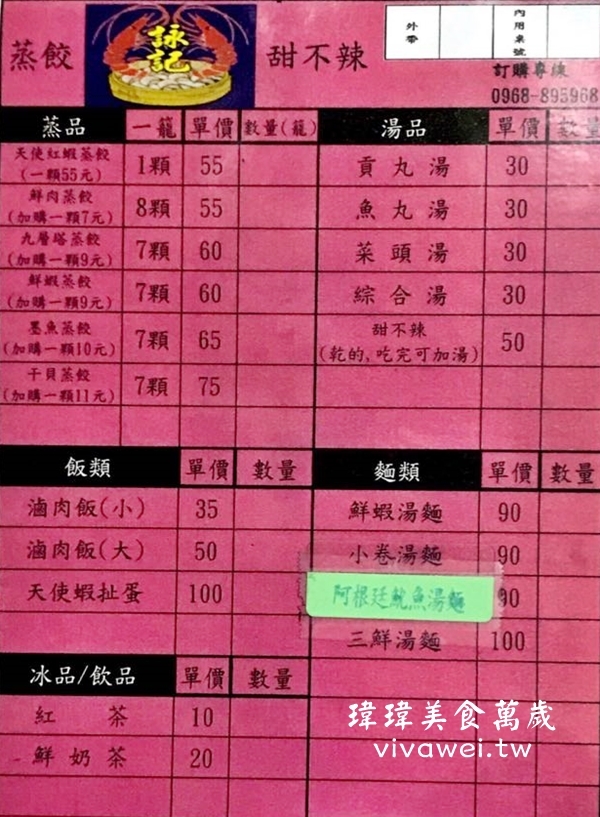 蒸餃 詠記 甜不辣
外帶 內用桌號
訂購專線
0968-895968
蒸品 一籠 單價 數量(籠)
天使紅蝦蒸餃 1顆 55
(一顆55元)
鮮肉蒸餃 8顆 55
(加購一顆7元)
九層塔蒸餃 7顆 60
(加購一顆9元)
鮮蝦蒸餃 7顆 60
(加購一顆9元)
墨魚蒸餃 7顆 65
(加購一顆10元)
干貝蒸餃 7顆 75
(加購一顆11元)
湯品 單價 數量
貢丸湯 30
魚丸湯 30
菜頭湯 30
綜合湯 30
甜不辣 50
(乾的,吃完可加湯)
飯類 單價 數量
滷肉飯(小) 35
滷肉飯(大) 50
天使蝦扯蛋 100
麵類 單價 數量
鮮蝦湯麵 90
小卷湯麵 90
阿根廷魷魚湯麵 90
三鮮湯麵 100
冰品/飲品 單價 數量
紅茶 10
鮮奶茶 20
瑋瑋美食萬歲
vivawei.tw